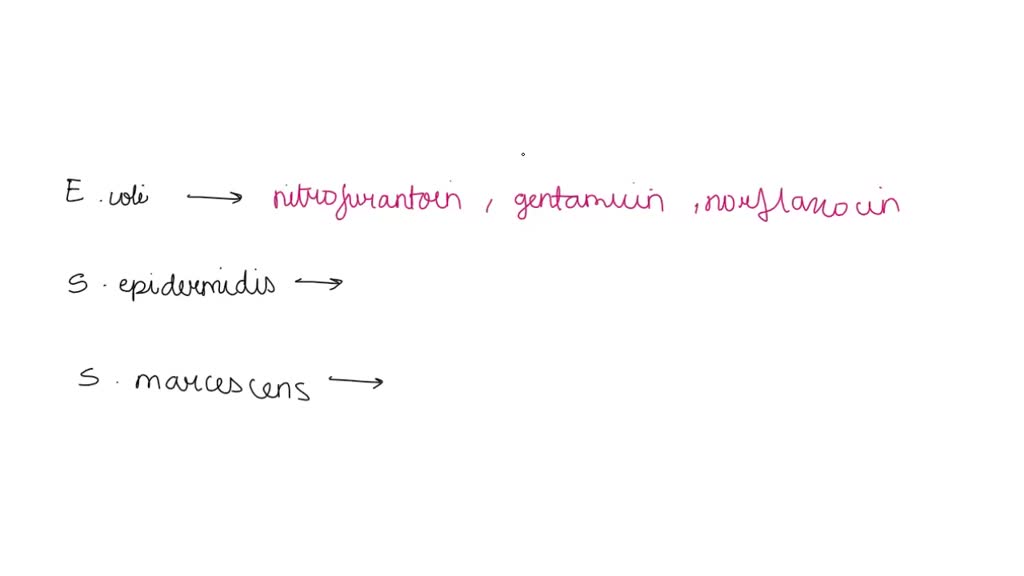 E. coli → nitrofurantoin, gentamicin, norfloxocin
S. epidermidis →
S. marcescens →